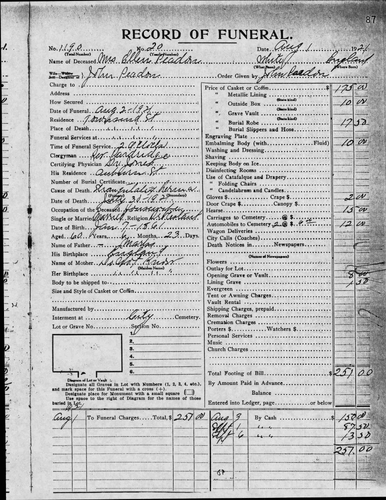 87
RECORD OF FUNERAL.
No. 1190 No. 20 Date Aug 1 1921
Name of Deceased Mrs. Ellen Peadon White England
Order Given by John Peadon
Charge to
Address
How Secured
Date of Funeral Aug 2 1921
Residence Townsend St
Place of Death
Funeral Services at
Time of Funeral Service 2 o'clock
Clergyman Rev
Certifying Physician Dr Jones
His Residence Auburn St
Number of Burial Certificate
Cause of Death Strangulated hernia
Date of Death July 31 1921
Occupation of the Deceased Housewife
Single or Married Married Religion
Date of Birth Jan 7 - 1861
Aged 60 Years 6 Months 23 Days
Name of Father
His Birthplace England
Name of Mother
Her Birthplace
Body to be shipped to
Size and Style of Casket or Coffin
Manufactured by
Interment at City Cemetery
Lot or Grave No. Section No.
1.
2.
3.
4.
5.
6.
Diagram of Lot or Vault
Designate all Graves in Lot with Numbers (1, 2, 3, 4, etc.), and mark space for this Funeral with a cross (+).
Designate place for Monument with a small square
Use space to the right of Diagram for the names of those buried in Lot.
Price of Casket or Coffin 175 00
" Metallic Lining
" Outside Box 10 00
" Grave Vault
" Burial Robe 17 50
" Burial Slippers and Hose
Engraving Plate
Embalming Body (with Fluid) 10 00
Washing and Dressing
Shaving
Keeping Body on Ice
Disinfecting Rooms
Use of Catafalque and Drapery
" Folding Chairs
" Candelabrum and Candles
Gloves $ Crape $ 2 00
Door Crape $ Candy $
Hearse 15 00
Carriages to Cemetery @ $
Automobiles to Cemetery 12 00
Wagon Deliveries
City Calls (Coaches)
Death Notices in Newspapers
Flowers
Outlay for Lot
Opening Grave or Vault 8 00
Lining Grave 1 50
Evergreen
Tent or Awning Charges
Vault Rental
Shipping Charges, prepaid
Removal Charges
Cremation Charges
Porters $ Watchers $
Personal Services
Music
Church Charges
Total Footing of Bill 251 00
By Amount Paid in Advance
Balance
Entered into Ledger, page or below.
Aug 1 To Funeral Charges Total, $ 251 00
Aug 9 By Cash 150 00
Sept 1 87 50
Sept 6 13 50
251 00